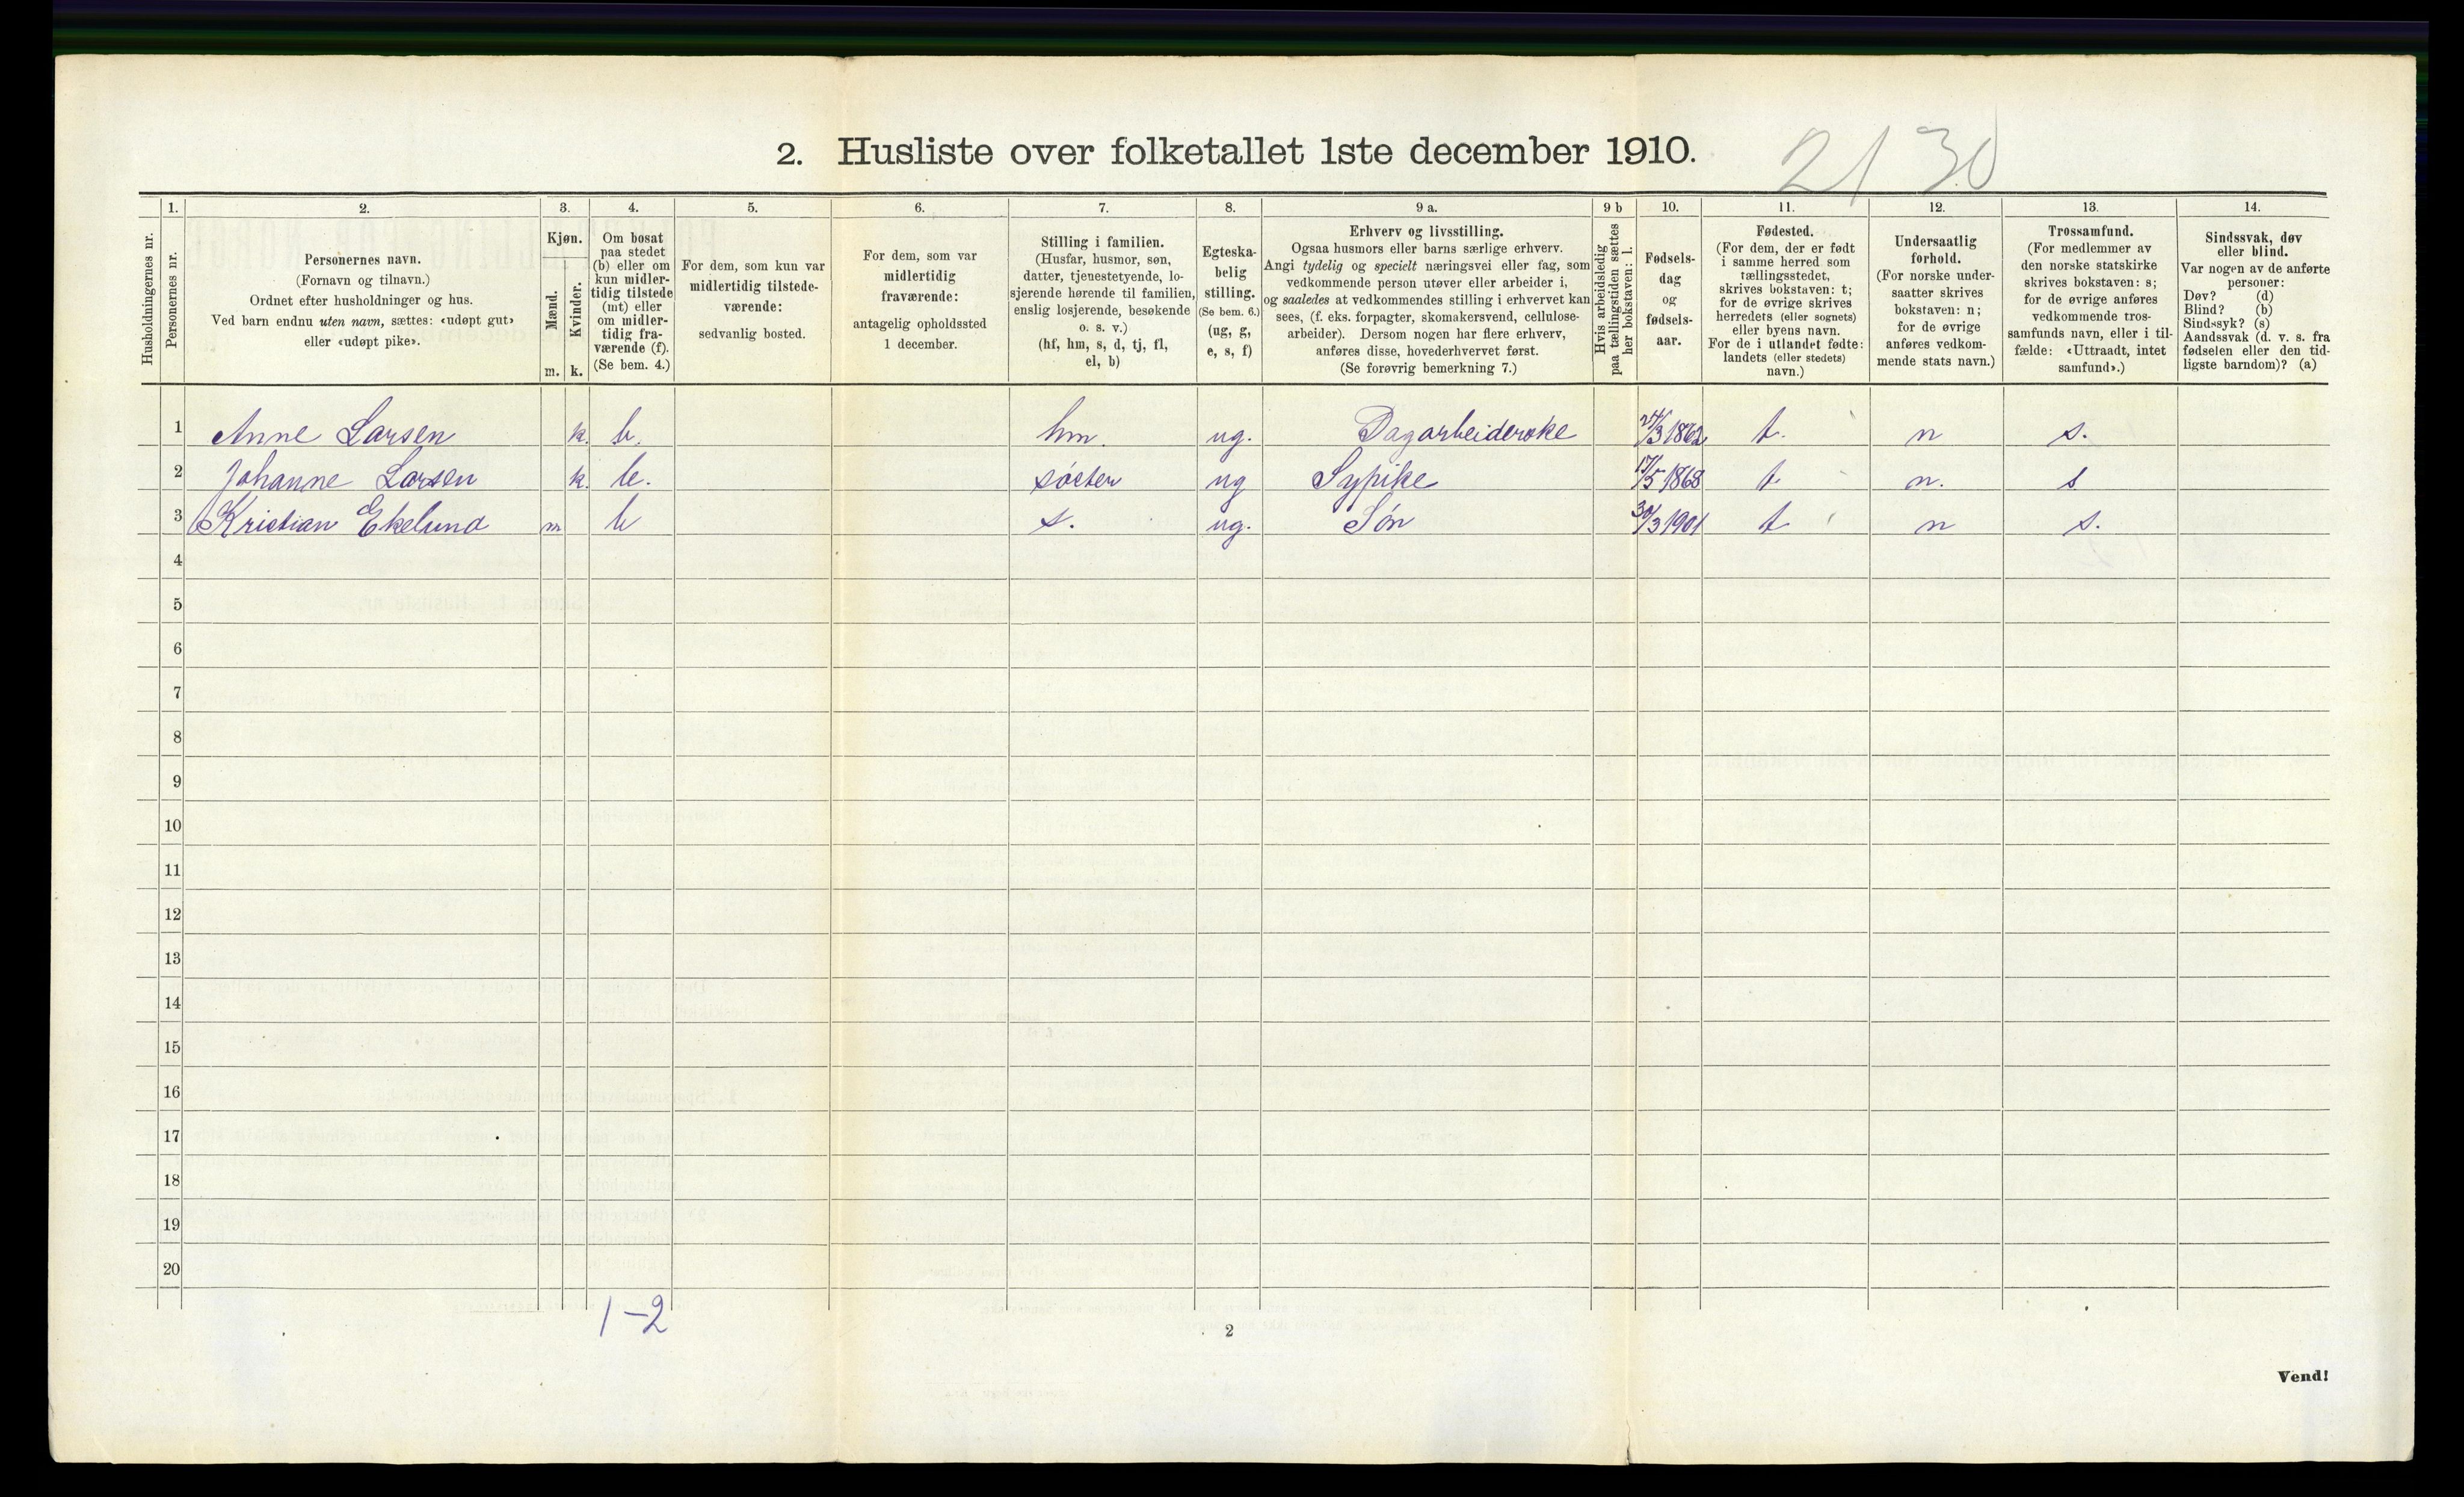 2. Husliste over folketallet 1ste december 1910.
21 30
Husholdningernes nr.
1.
Personernes nr.
2.
Personernes navn.
(Fornavn og tilnavn.)
Ordnet efter husholdninger og hus.
Ved barn endnu uten navn, sættes: «udøpt gut»
eller «udøpt pike».
3.
Kjøn.
Mænd.
Kvinder.
m. k.
4.
Om bosat
paa stedet
(b) eller om
kun midler-
tidig tilstede
(mt) eller
om midler-
tidig fra-
værende (f).
(Se bem. 4.)
5.
For dem, som kun var
midlertidig tilstede-
værende:
sedvanlig bosted.
6.
For dem, som var
midlertidig
fraværende:
antagelig opholdssted
1 december.
7.
Stilling i familien.
(Husfar, husmor, søn,
datter, tjenestetyende, lo-
sjerende hørende til familien,
enslig losjerende, besøkende
o. s. v.)
(hf, hm, s, d, tj, fl,
el, b)
8.
Egteska-
belig
stilling.
(Se bem. 6.)
(ug, g,
e, s, f)
9 a.
Erhverv og livsstilling.
Ogsaa husmors eller barns særlige erhverv.
Angi tydelig og specielt næringsvei eller fag, som
vedkommende person utøver eller arbeider i,
og saaledes at vedkommendes stilling i erhvervet kan
sees, (f. eks. forpagter, skomakersvend, cellulose-
arbeider). Dersom nogen har flere erhverv,
anføres disse, hovederhvervet først.
(Se forøvrig bemerkning 7.)
9 b
Hvis arbeidsledig
paa tællingstiden sættes
her bokstaven: l.
10.
Fødsels-
dag
og
fødsels-
aar.
11.
Fødested.
(For dem, der er født
i samme herred som
tællingsstedet,
skrives bokstaven: t;
for de øvrige skrives
herredets (eller sognets)
eller byens navn.
For de i utlandet fødte:
landets (eller stedets)
navn.)
12.
Undersaatlig
forhold.
(For norske under-
saatter skrives
bokstaven: n;
for de øvrige
anføres vedkom-
mende stats navn.)
13.
Trossamfund.
(For medlemmer av
den norske statskirke
skrives bokstaven: s;
for de øvrige anføres
vedkommende tros-
samfunds navn, eller i til-
fælde: «Uttraadt, intet
samfund».)
14.
Sindssvak, døv
eller blind.
Var nogen av de anførte
personer:
Døv? (d)
Blind? (b)
Sindssyk? (s)
Aandssvak (d. v. s. fra
fødselen eller den tid-
ligste barndom)? (a)
1 Anne Larsen k. b. hm. ug. Dagarbeiderske 24/3 1862 t. n s.
2 Johanne Larsen k. b. søster ug Sypike 17/5 1868 t n. s
3 Kristian Ekelund m b s. ug. Søn 30/3 1901 t n s.
4
5
6
7
8
9
10
11
12
13
14
15
16
17
18
19
20
1-2
2
Vend!